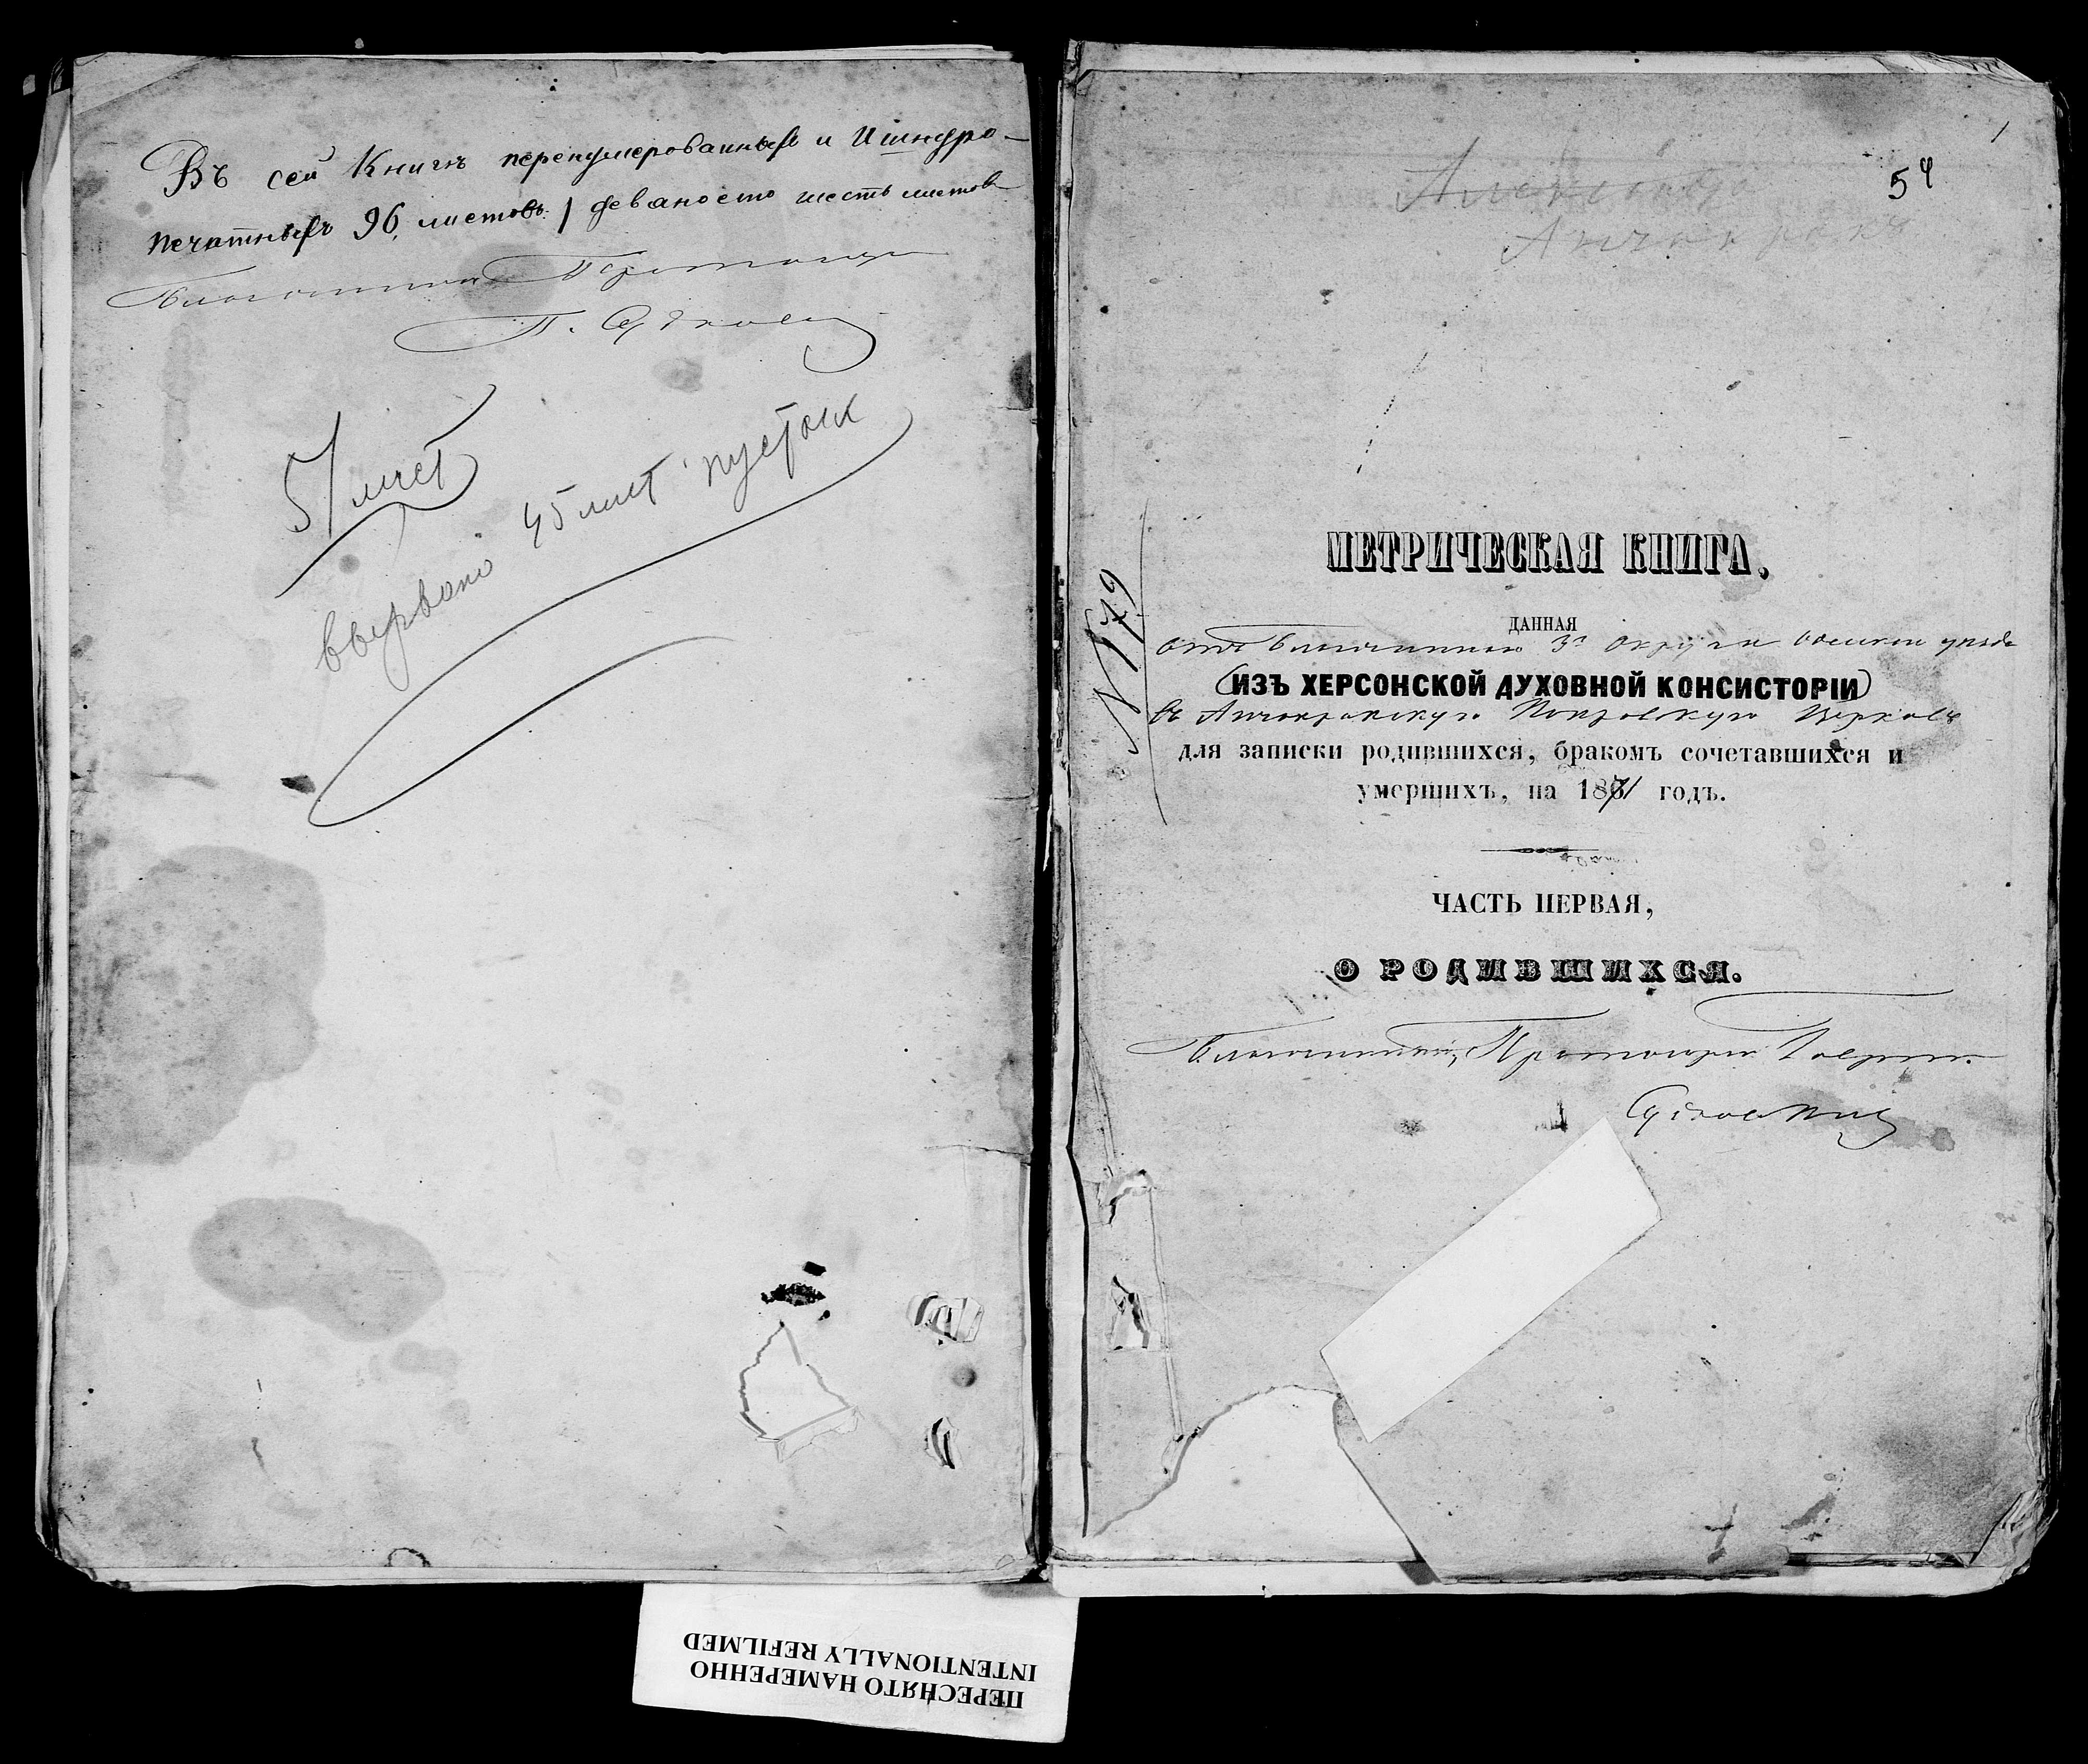 Въ сей Книгѣ перенумерованныхъ и Шнуро-
печатныхъ 96, листовъ / девяносто шесть листовъ
Благочинный Протоиерей
П.
51 лист
вырвано 45 лист пустых
1
54
Анчокракъ
МЕТРИЧЕСКАЯ КНИГА,
ДАННАЯ
отъ Благочиннаго 3го Округа Одескаго уѣзда
(ИЗЪ ХЕРСОНСКОЙ ДУХОВНОЙ КОНСИСТОРІИ)
въ Анчокракскую Покровскую Церковь
для записки родившихся, бракомъ сочетавшихся и
умершихъ, на 1871 годъ.
ЧАСТЬ ПЕРВАЯ,
О РОДИВШИХСЯ.
Благочинный, Протоиерей
N 179
ПЕРЕСНЯТО НАМЕРЕННО
INTENTIONALLY REFILMED